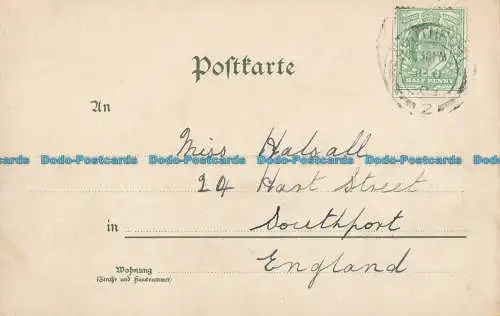 Postkarte
HALF PENNY
2
An
Miss Halsall
Dodo-Postcards Dodo-Postcards Dodo-Postcards Dodo-Postcards
24 Hart Street
in Southport
England
Wohnung
(Straße und Hausnummer)